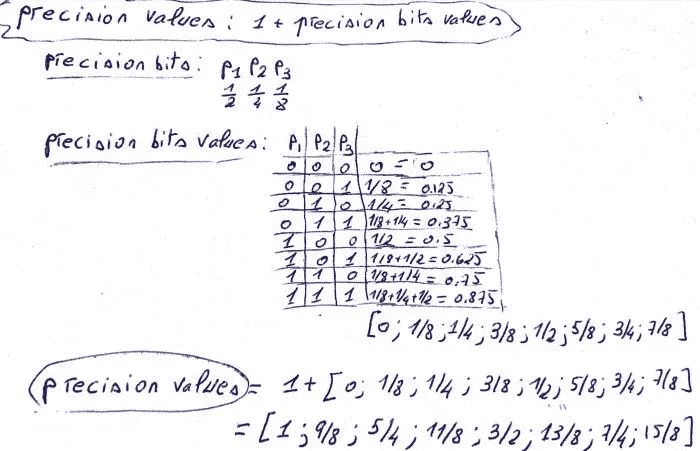 precision values : 1 + precision bits values
precision bits : P1 P2 P3
1/2 1/4 1/8
precision bits values : P1 P2 P3
0 0 0 0 = 0
0 0 1 1/8 = 0.125
0 1 0 1/4 = 0.25
0 1 1 1/8+1/4 = 0.375
1 0 0 1/2 = 0.5
1 0 1 1/8+1/2 = 0.625
1 1 0 1/8+1/4 = 0,75
1 1 1 1/8+1/4+1/2 = 0.875
[0; 1/8; 1/4; 3/8; 1/2; 5/8; 3/4; 7/8]
precision values = 1 + [0; 1/8; 1/4; 3/8; 1/2; 5/8; 3/4; 7/8]
= [1; 9/8; 5/4; 11/8; 3/2; 13/8; 7/4; 15/8]